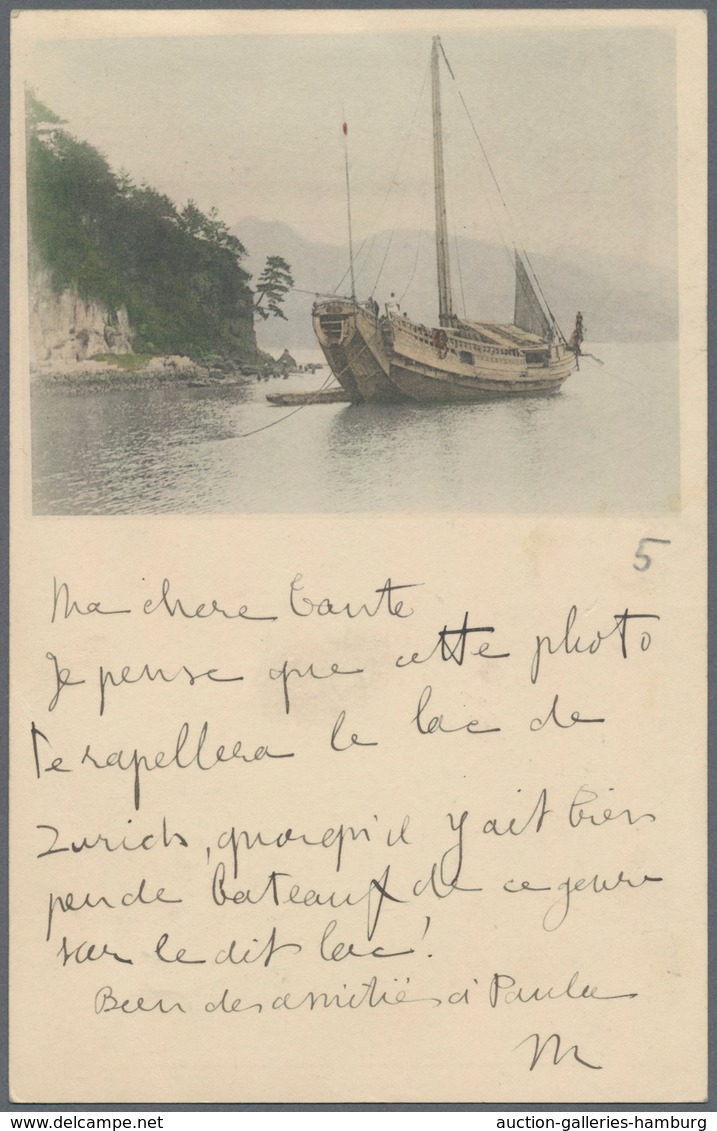 5
Ma chere tante
Je pense que cette photo
te rapellera le lac de
Zurich, quoiqu'il y ait bien
peu de bateaux de ce genre
sur le dit lac!
Bien des amitiés à Paula
M
auction-galleries-hamburg